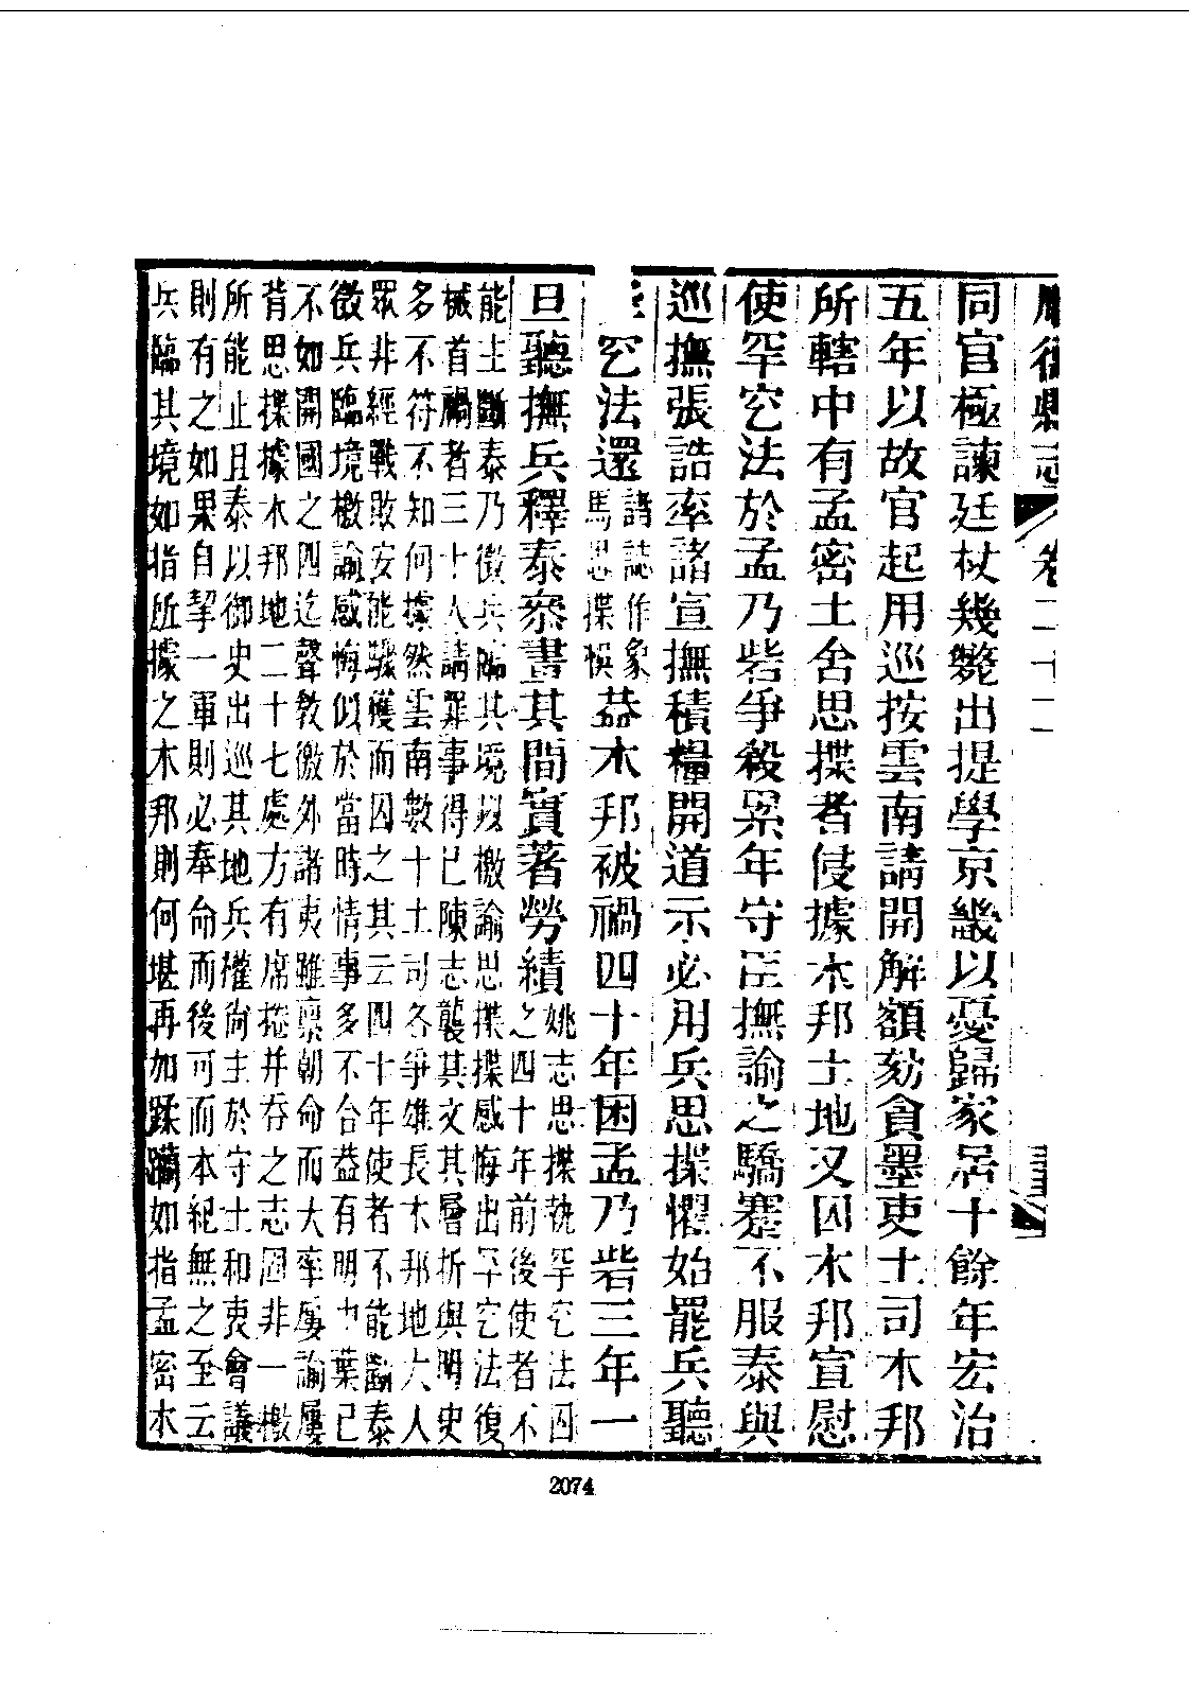 順德縣志 卷二十二
同官極諫廷杖幾斃出提學京畿以憂歸家居十餘年宏治
五年以故官起用巡按雲南請開解額劾貪墨吏土司木邦
所轄中有孟密土舍思揲者侵據木邦土地又因木邦宣慰
使罕穵法於孟乃砦爭殺累年守臣撫諭之驕蹇不服泰與
巡撫張誥率諸宣撫積糧開道示必用兵思揲懼始罷兵聽
穵法還諸誌作象馬思揲悞葢木邦被禍四十年困孟乃砦三年一
旦聽撫兵釋泰叅畫其間實著勞績姚志思揲執罕穵法囚
之四十年前後使者不
能主斷泰乃徵兵臨其境以檄諭思揲揲感悔出罕穵法復
械首禍者三十人請罪事得已陳志襲其文其層折與明史
多不符不知何據然雲南數十土司各爭雄長木邦地大人
眾非經戰敗安能驟獲而囚之其云四十年使者不能斷泰
徵兵臨境檄諭感悔似於當時情事多不合益有明中葉已
不如開國之四迄聲敎徼外諸夷雖稟朝命而大率屢諭屢
背思揲據木邦地二十七處方有席捲并吞之志固非一檄
所能止且泰以御史出巡其地兵權尙主於守土和夷會議
則有之如果自挈一軍則必奉命而後可而本紀無之至云
兵臨其境如指所據之木邦則何堪再加蹂躪如指孟密木
2074